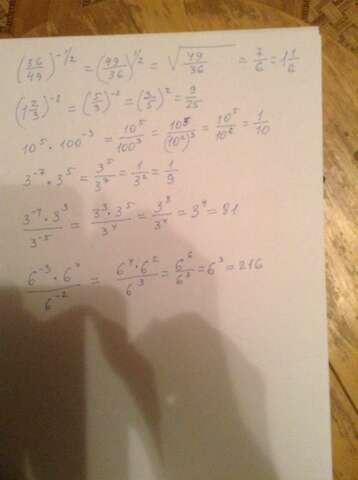 (36/49)^(-1/2) = (49/36)^(1/2) = √(49/36) = 7/6 = 1 1/6
(1 2/3)^(-2) = (5/3)^(-2) = (3/5)^2 = 9/25
10^5 · 100^(-3) = 10^5/100^3 = 10^5/(10^2)^3 = 10^5/10^6 = 1/10
3^(-7) · 3^5 = 3^5/3^7 = 1/3^2 = 1/9
(3^(-4) · 3^3)/3^(-5) = (3^3 · 3^5)/3^4 = 3^8/3^4 = 3^4 = 81
(6^(-3) · 6^4)/6^(-2) = (6^4 · 6^2)/6^3 = 6^6/6^3 = 6^3 = 216